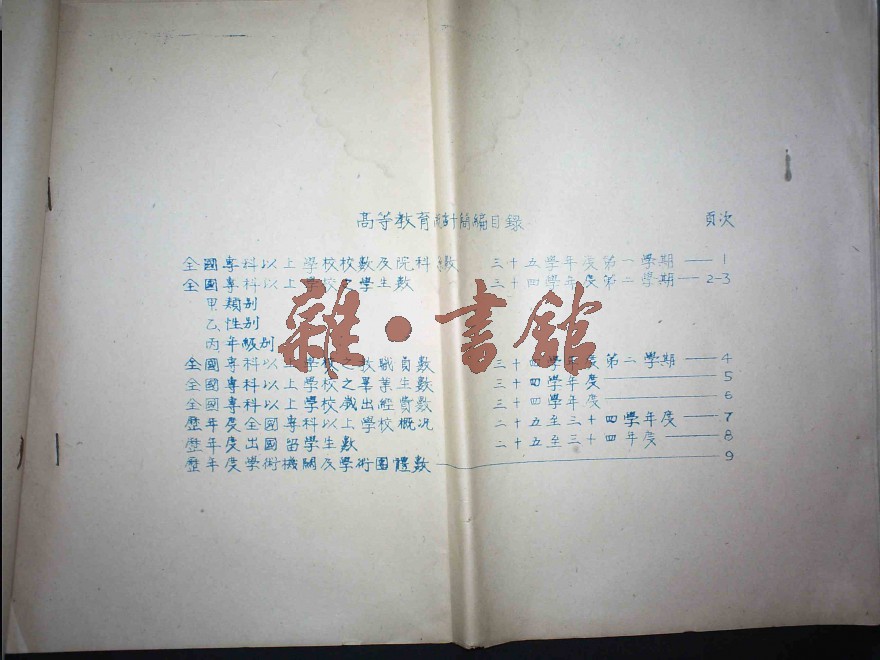 高等教育統計簡編目錄 頁次
全國專科以上學校校數及院科系數 三十五學年度第一學期 —— 1
全國專科以上學校之學生數 三十四學年度第二學期 —— 2-3
甲、類別
乙、性別
丙、年級別
雜·書館
全國專科以上學校之教職員數 三十四學年度第二學期 —— 4
全國專科以上學校之畢業生數 三十四學年度 —— 5
全國專科以上學校歲出經費數 三十四學年度 —— 6
歷年度全國專科以上學校概況 二十五至三十四學年度 —— 7
歷年度出國留學生數 二十五至三十四年度 —— 8
歷年度學術機關及學術團體數 —— 9